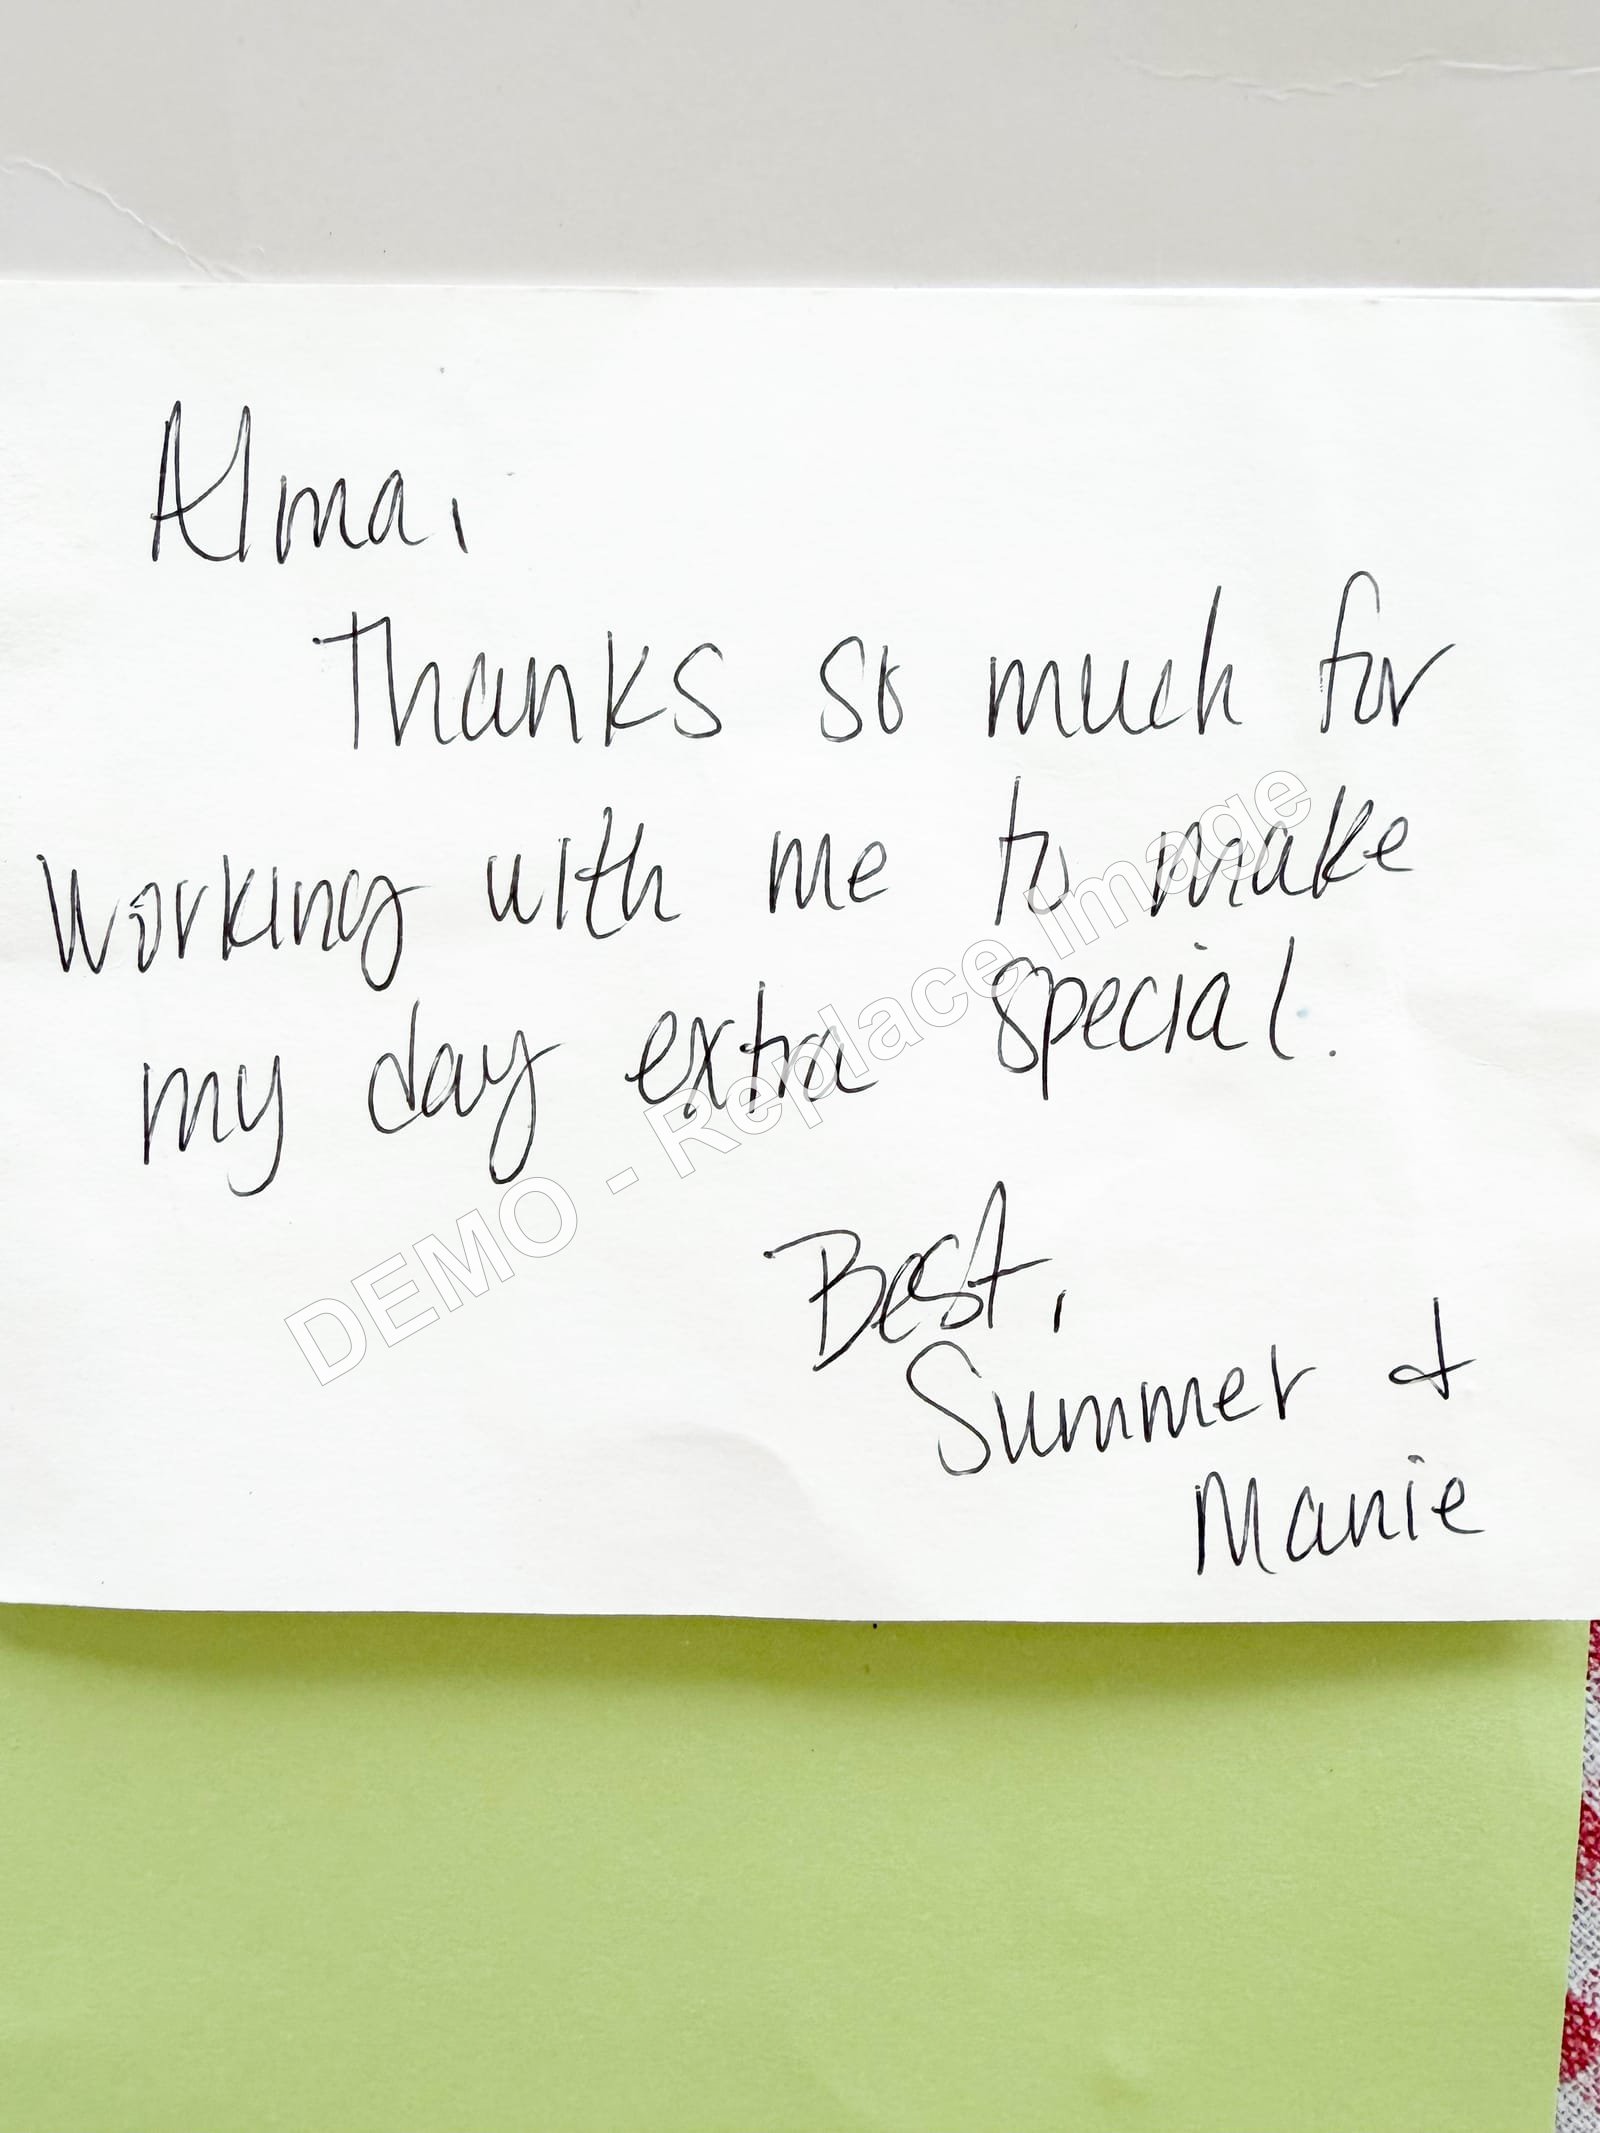 Alma,
Thanks so much for
working with me to make
my day extra special.
Best,
Summer &
Manie
DEMO - Replace Image